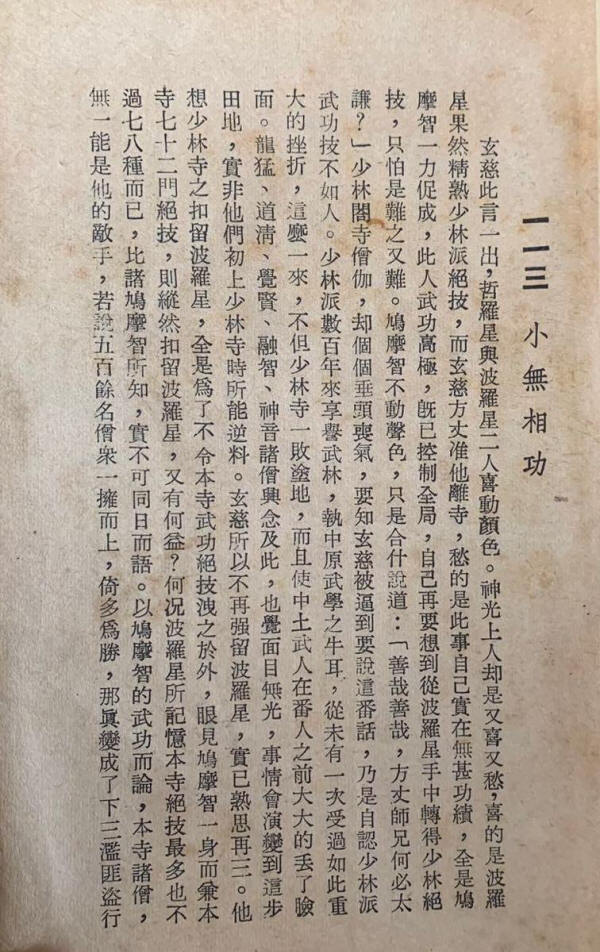 一一三　小無相功
玄慈此言一出，哲羅星與波羅星二人喜動顏色。神光上人却是又喜又愁，喜的是波羅
星果然精熟少林派絕技，而玄慈方丈准他離寺，愁的是此事自己實在無甚功績，全是鳩
摩智一力促成，此人武功高極，旣已控制全局，自己再要想到從波羅星手中轉得少林絕
技，只怕是難之又難。鳩摩智不動聲色，只是合什說道：「善哉善哉，方丈師兄何必太
謙？」少林闔寺僧伽，却個個垂頭喪氣，要知玄慈被逼到要說這番話，乃是自認少林派
武功技不如人。少林派數百年來享譽武林，執中原武學之牛耳，從未有一次受過如此重
大的挫折，這麼一來，不但少林寺一敗塗地，而且使中土武人在番人之前大大的丟了臉
面。龍猛、道淸、覺賢、融智、神音諸僧興念及此，也覺面目無光，事情會演變到這步
田地，實非他們初上少林寺時所能逆料。玄慈所以不再强留波羅星，實已熟思再三。他
想少林寺之扣留波羅星，全是爲了不令本寺武功絕技洩之於外，眼見鳩摩智一身而兼本
寺七十二門絕技，則縱然扣留波羅星，又有何益？何況波羅星所記憶本寺絕技最多也不
過七八種而已，比諸鳩摩智所知，實不可同日而語。以鳩摩智的武功而論，本寺諸僧，
無一能是他的敵手，若說五百餘名僧衆一擁而上，倚多爲勝，那眞變成了下三濫匪盜行